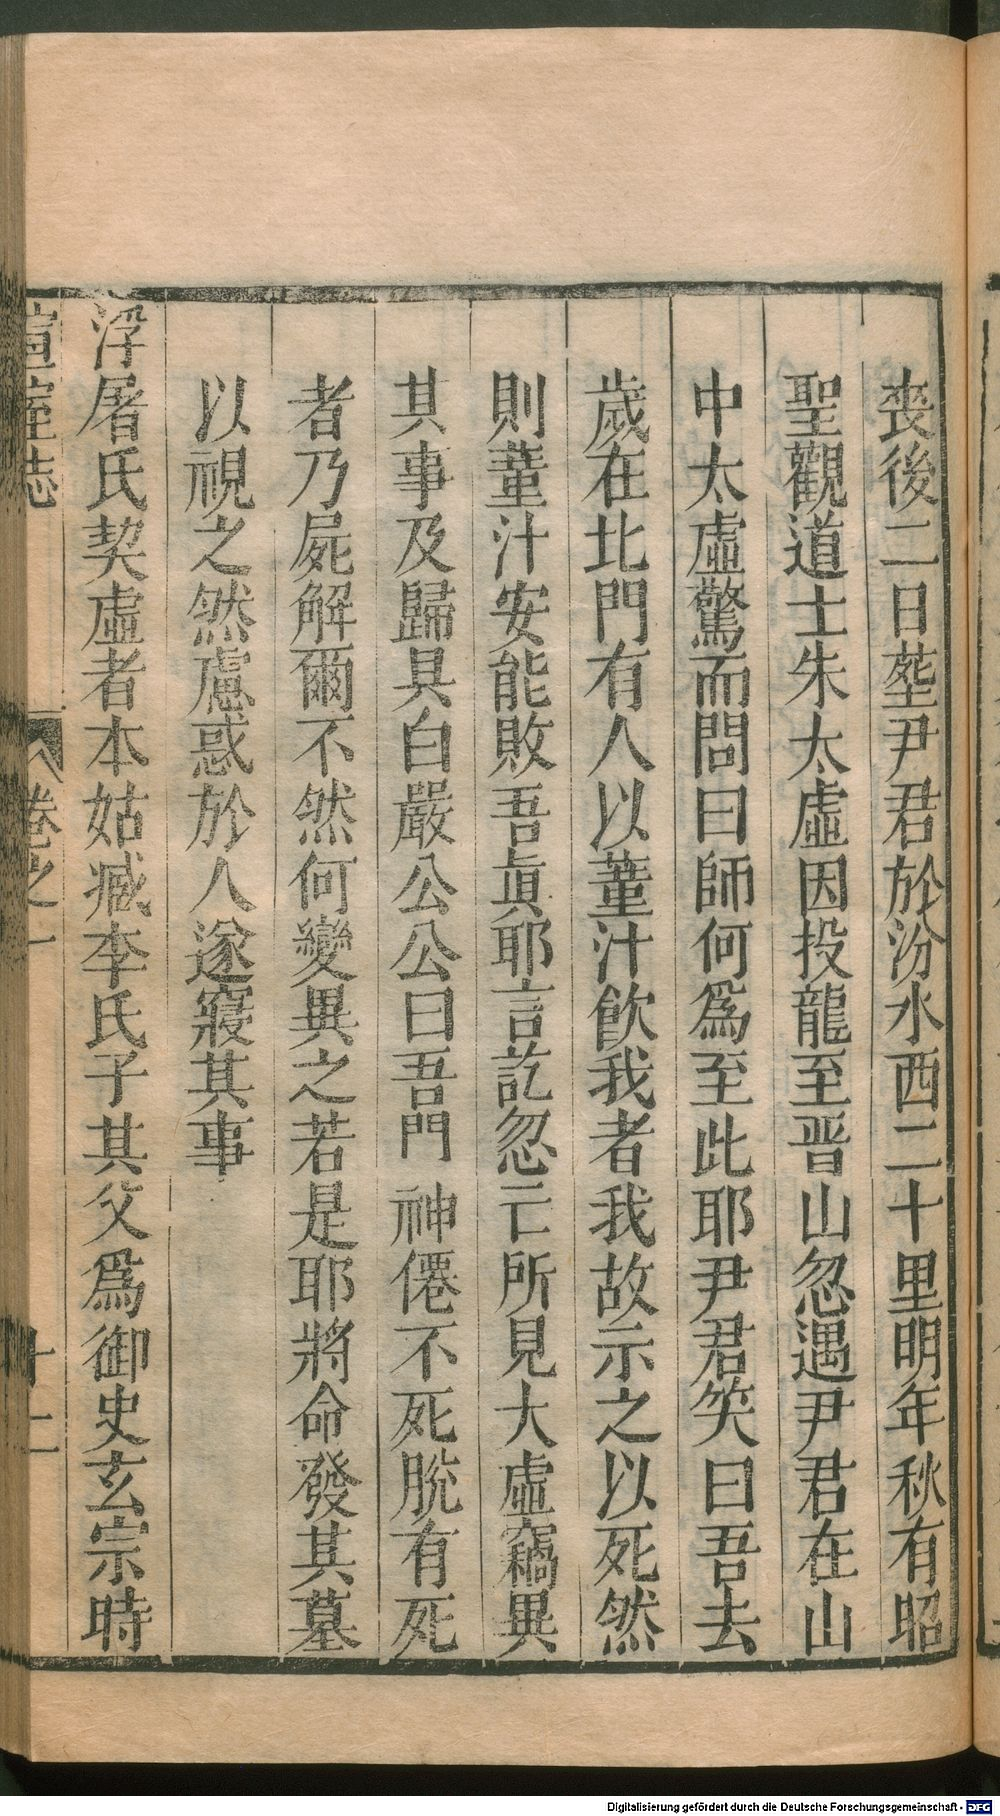 喪後二日塟尹君於汾水西二十里明年秋有昭
聖觀道士朱太虛因投龍至晋山忽遇尹君在山
中太虛驚而問曰師何爲至此耶尹君笑曰吾去
歲在北門有人以蓳汁飲我者我故示之以死然
則蓳汁安能敗吾眞耶言訖忽亡所見大虛竊異
其事及歸具白嚴公公曰吾門神僊不死脫有死
者乃屍解爾不然何變異之若是耶將命發其墓
以視之然慮惑於人遂寢其事
浮屠氏契虛者本姑臧李氏子其父爲御史玄宗時
宣室志 卷之一 十二
Digitalisierung gefördert durch die Deutsche Forschungsgemeinschaft - DFG